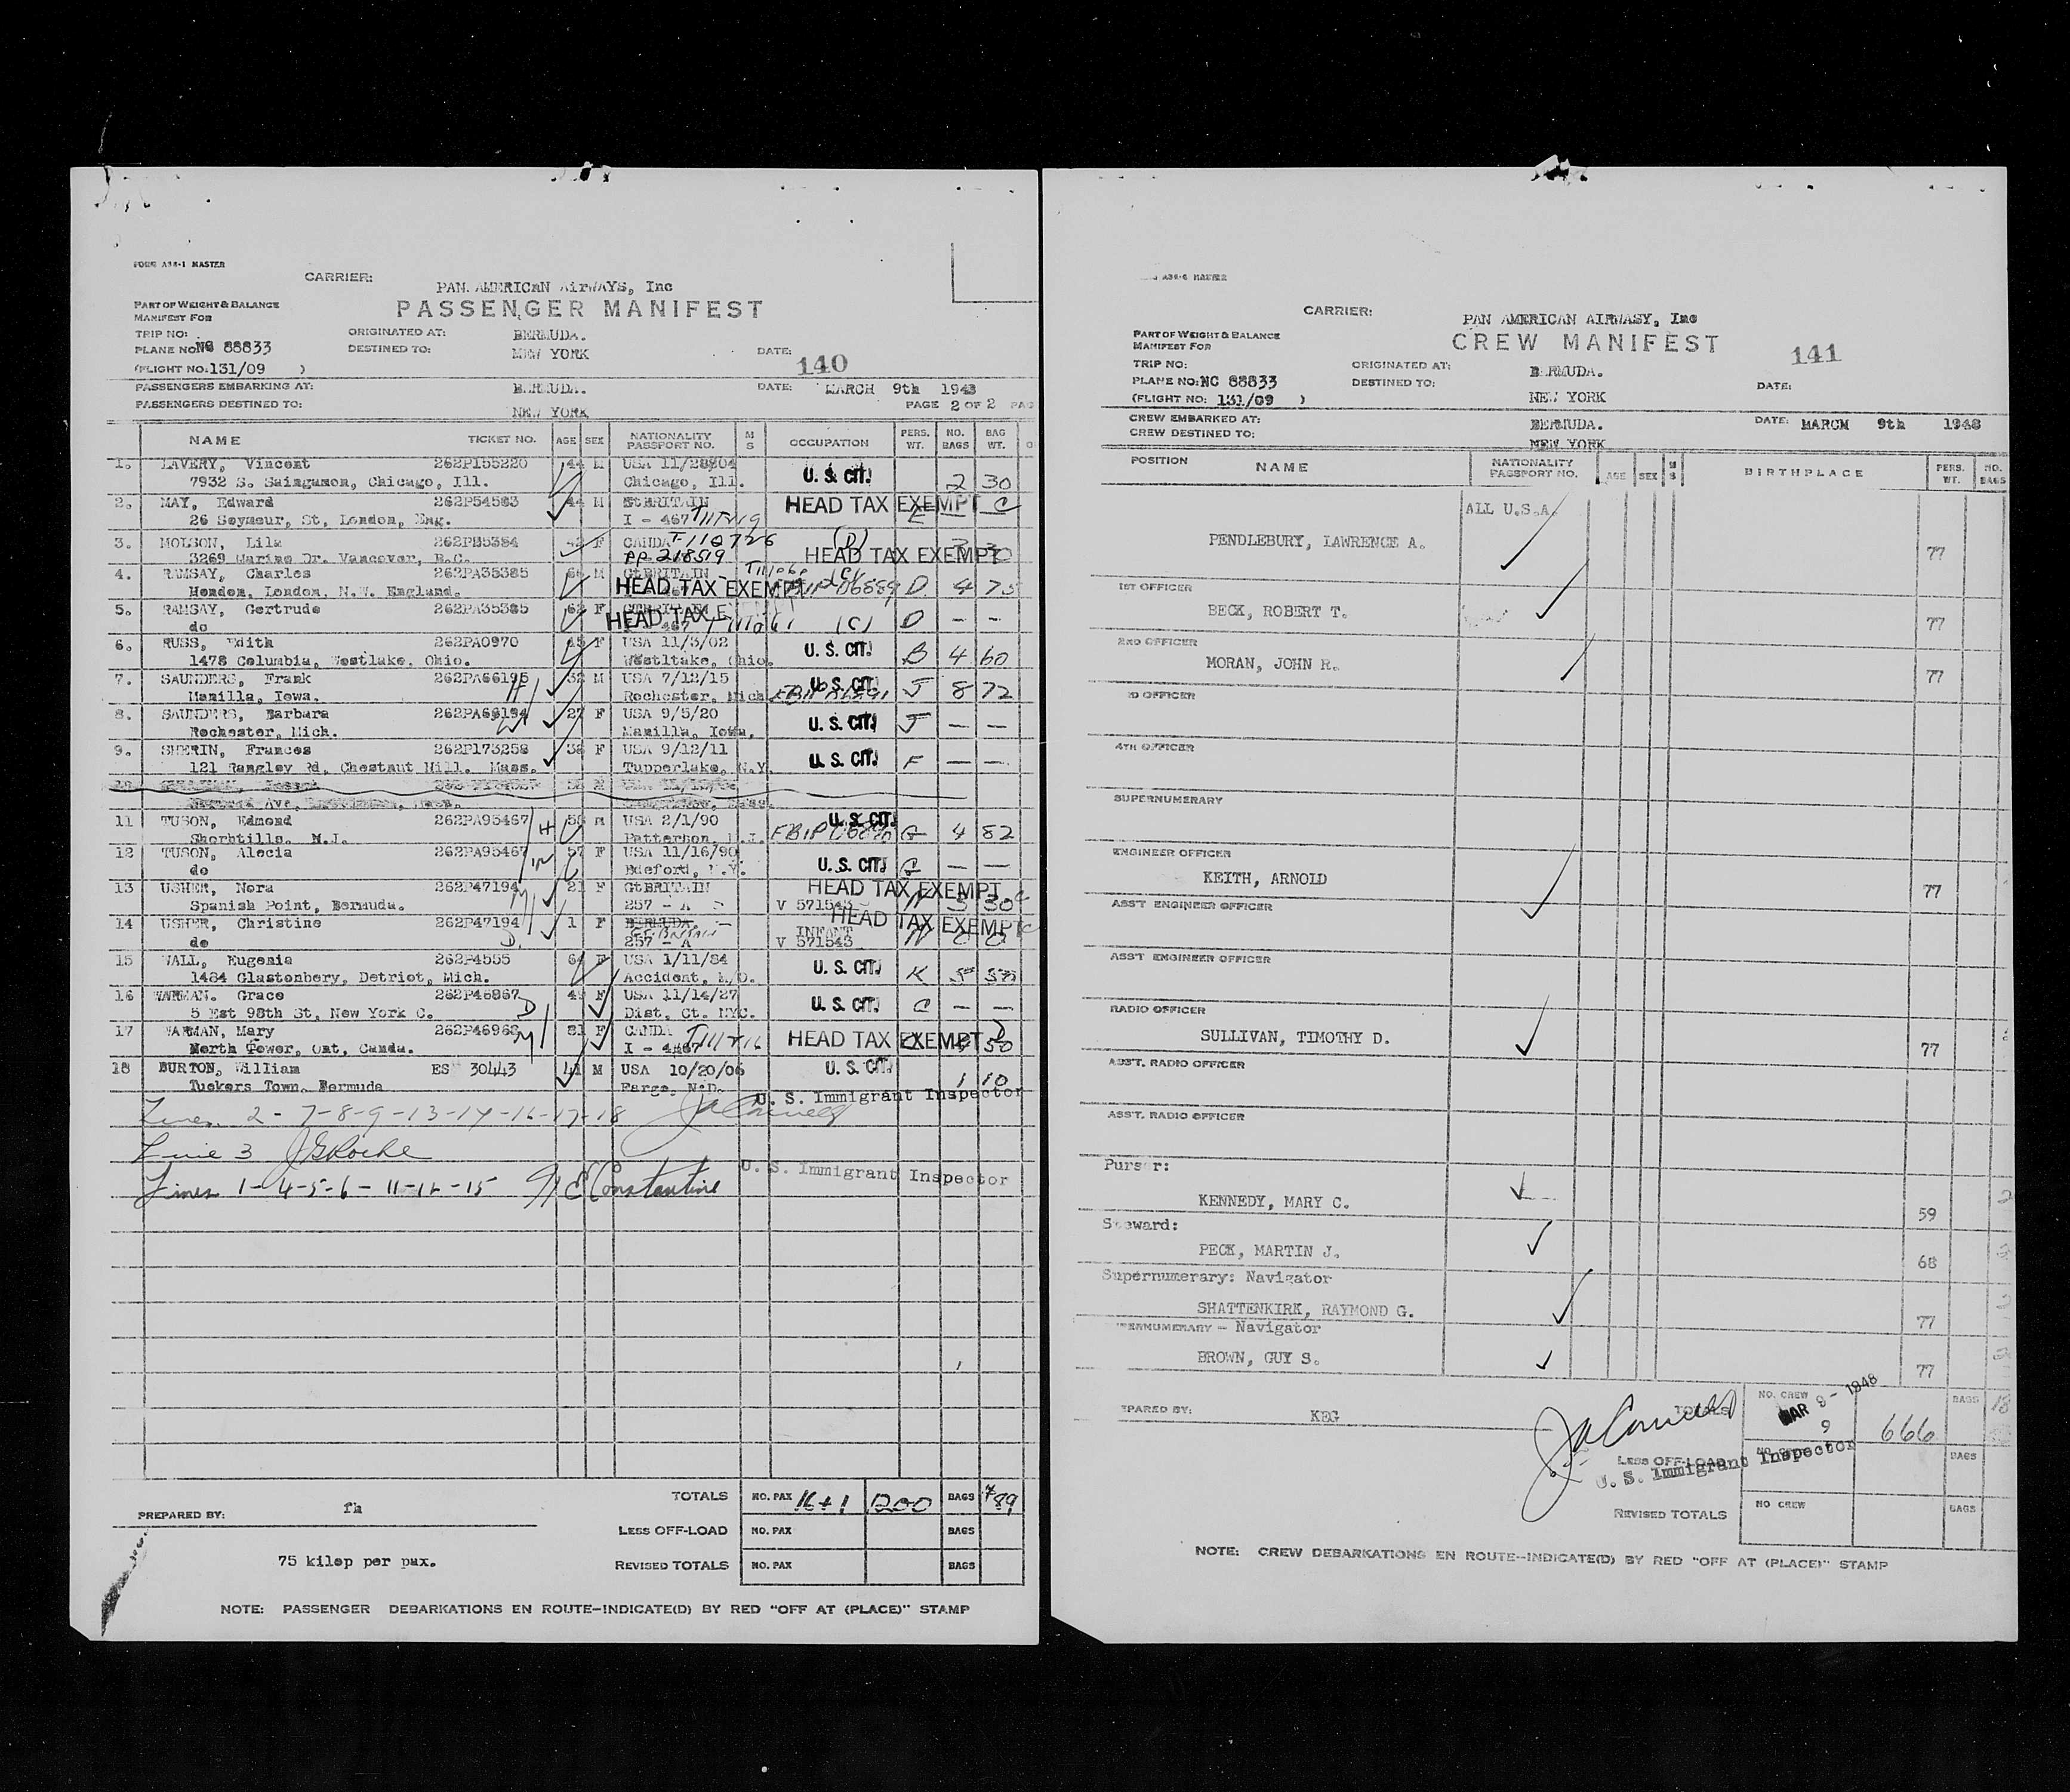 FORM A34-1 MASTER
CARRIER:
PAN. AMERICAN AirWAYS, Inc
PASSENGER MANIFEST
PART OF WEIGHT & BALANCE
MANIFEST FOR
TRIP NO:
PLANE NO: NC 88833
(FLIGHT NO: 131/09 )
ORIGINATED AT: BERMUDA.
DESTINED TO: NEW YORK
DATE: 140
PASSENGERS EMBARKING AT: BERMUDA.
DATE: MARCH 9th 1948
PASSENGERS DESTINED TO: NEW YORK
PAGE 2 OF 2 PAG
NAME TICKET NO. AGE SEX NATIONALITY PASSPORT NO. M S OCCUPATION PERS. WT. NO. BAGS BAG WT.
1. LAVERY, Vincent 262P155220 44 M USA U. S. CIT. 2 30
7932 S. Saingamon, Chicago, Ill. Chicago, Ill.
2. MAY, Edward 262P54583 44 M GtBRITAIN HEAD TAX EXEMPT C
26 Seymour, St, London, Eng. I - 467
3. MOLSON, Lila F CANDA T-110726 (D)
3269 Marine Dr. Vancover, B.C. PP 218519 HEAD TAX EXEMPT
4. RAMSAY, Charles 262PA35385 M GtBRITAIN
Hendon, London, N.W. England. HEAD TAX EXEMPT D 4 75
5. RAMSAY, Gertrude 262PA35385 62 F
do HEAD TAX E (C) D - -
6. RUSS, Edith 262PA0970 45 F USA 11/3/02 U. S. CIT.
1478 Columbia, Westlake, Ohio. Westltake, Ohio. B 4 60
7. SAUNDERS, Frank 262PA66195 32 M USA 7/12/15 U. S. CIT.
Manilla, Iowa. H/ Rochester, Mich J 8 72
8. SAUNDERS, Barbara 262PA66194 27 F USA 9/5/20 U. S. CIT. J — —
Rochester, Mich. W Manilla, Iowa.
9. SHERIN, Frances 262P173258 36 F USA 9/12/11 U. S. CIT. F — —
121 Rangley Rd, Chestnut Hill. Mass. Tupperlake, N.Y.
10
11 TUSON, Edmond 262PA95467 H M USA 2/1/90 U. S. CIT.
Shorbtills. N.J. Patterson, N.J. G 4 82
12 TUSON, Alecia 262PA95467 57 F USA 11/16/90 U. S. CIT. G — —
do W Bdeford, N.Y.
13 USHER, Nora 262P47194 21 F GtBRITAIN HEAD TAX EXEMPT
Spanish Point, Bermuda. M/ 257 - A V 571543 N 3 30
14 USHER, Christine 262P47194 1 F BERMUDA. HEAD TAX EXEMPT
do D. Gt. Britain INFANT
257 - A V 571543 N 0 0
15 WALL, Eugenia 262P4555 64 F USA 1/11/84 U. S. CIT. K 5
1484 Glastonbery, Detriot, Mich. Accident, M/D.
16 WARMAN. Grace 262P46967 F USA 11/14/27 U. S. CIT. C — —
5 Est 98th St, New York C. D Dist. Ct. NYC.
17 WARMAN, Mary 262P46968 F CANDA HEAD TAX EXEMPT D
North Tower, Ont, Canda. M/ I - 4467 50
18 BURTON, William ES 30443 41 M USA 10/20/06 U. S. CIT. 1 10
Tuckers Town, Bermuda Fargo, N.D.
U. S. Immigrant Inspector
Lines 2-7-8-9-13-14-16-17-18
Line 3 J G Roche
Lines 1-4-5-6-11-12-15 E Constantine
U. S. Immigrant Inspector
TOTALS NO. PAX 16+1 1200 BAGS
PREPARED BY: fh
LESS OFF-LOAD NO. PAX BAGS
75 kilop per pax.
REVISED TOTALS NO. PAX BAGS
NOTE: PASSENGER DEBARKATIONS EN ROUTE-INDICATE(D) BY RED "OFF AT (PLACE)" STAMP
A34-6 MASTER
CARRIER:
PAN AMERICAN AIRWASY, Inc
CREW MANIFEST
141
PART OF WEIGHT & BALANCE
MANIFEST FOR
TRIP NO:
PLANE NO: NC 88833
(FLIGHT NO: 131/09 )
ORIGINATED AT: BERMUDA.
DESTINED TO: NEW YORK
DATE:
CREW EMBARKED AT: BERMUDA.
DATE: MARCM 9th 1948
CREW DESTINED TO: NEW YORK
POSITION NAME NATIONALITY PASSPORT NO. AGE SEX M S BIRTHPLACE PERS. WT. NO. BAGS
ALL U.S.A.
PENDLEBURY, LAWRENCE A. 77
1ST OFFICER
BECK, ROBERT T. 77
2ND OFFICER
MORAN, JOHN R. 77
D OFFICER
4TH OFFICER
SUPERNUMERARY
ENGINEER OFFICER
KEITH, ARNOLD 77
ASS'T ENGINEER OFFICER
ASS'T ENGINEER OFFICER
RADIO OFFICER
SULLIVAN, TIMOTHY D. 77
ASS'T. RADIO OFFICER
ASS'T. RADIO OFFICER
Purser:
KENNEDY, MARY C. 59
Steward:
PECK, MARTIN J. 68
Supernumerary: Navigator
SHATTENKIRK, RAYMOND G. 77
ERNUMERARY - Navigator
BROWN, GUY S. 77
EPARED BY: KEG
TOTALS NO. CREW 9 666 BAGS 18
MAR 9 - 1948
LESS OFF-LOAD NO. CREW BAGS
U. S. Immigrant Inspector
REVISED TOTALS NO CREW BAGS
NOTE: CREW DEBARKATIONS EN ROUTE-INDICATE(D) BY RED "OFF AT (PLACE)" STAMP